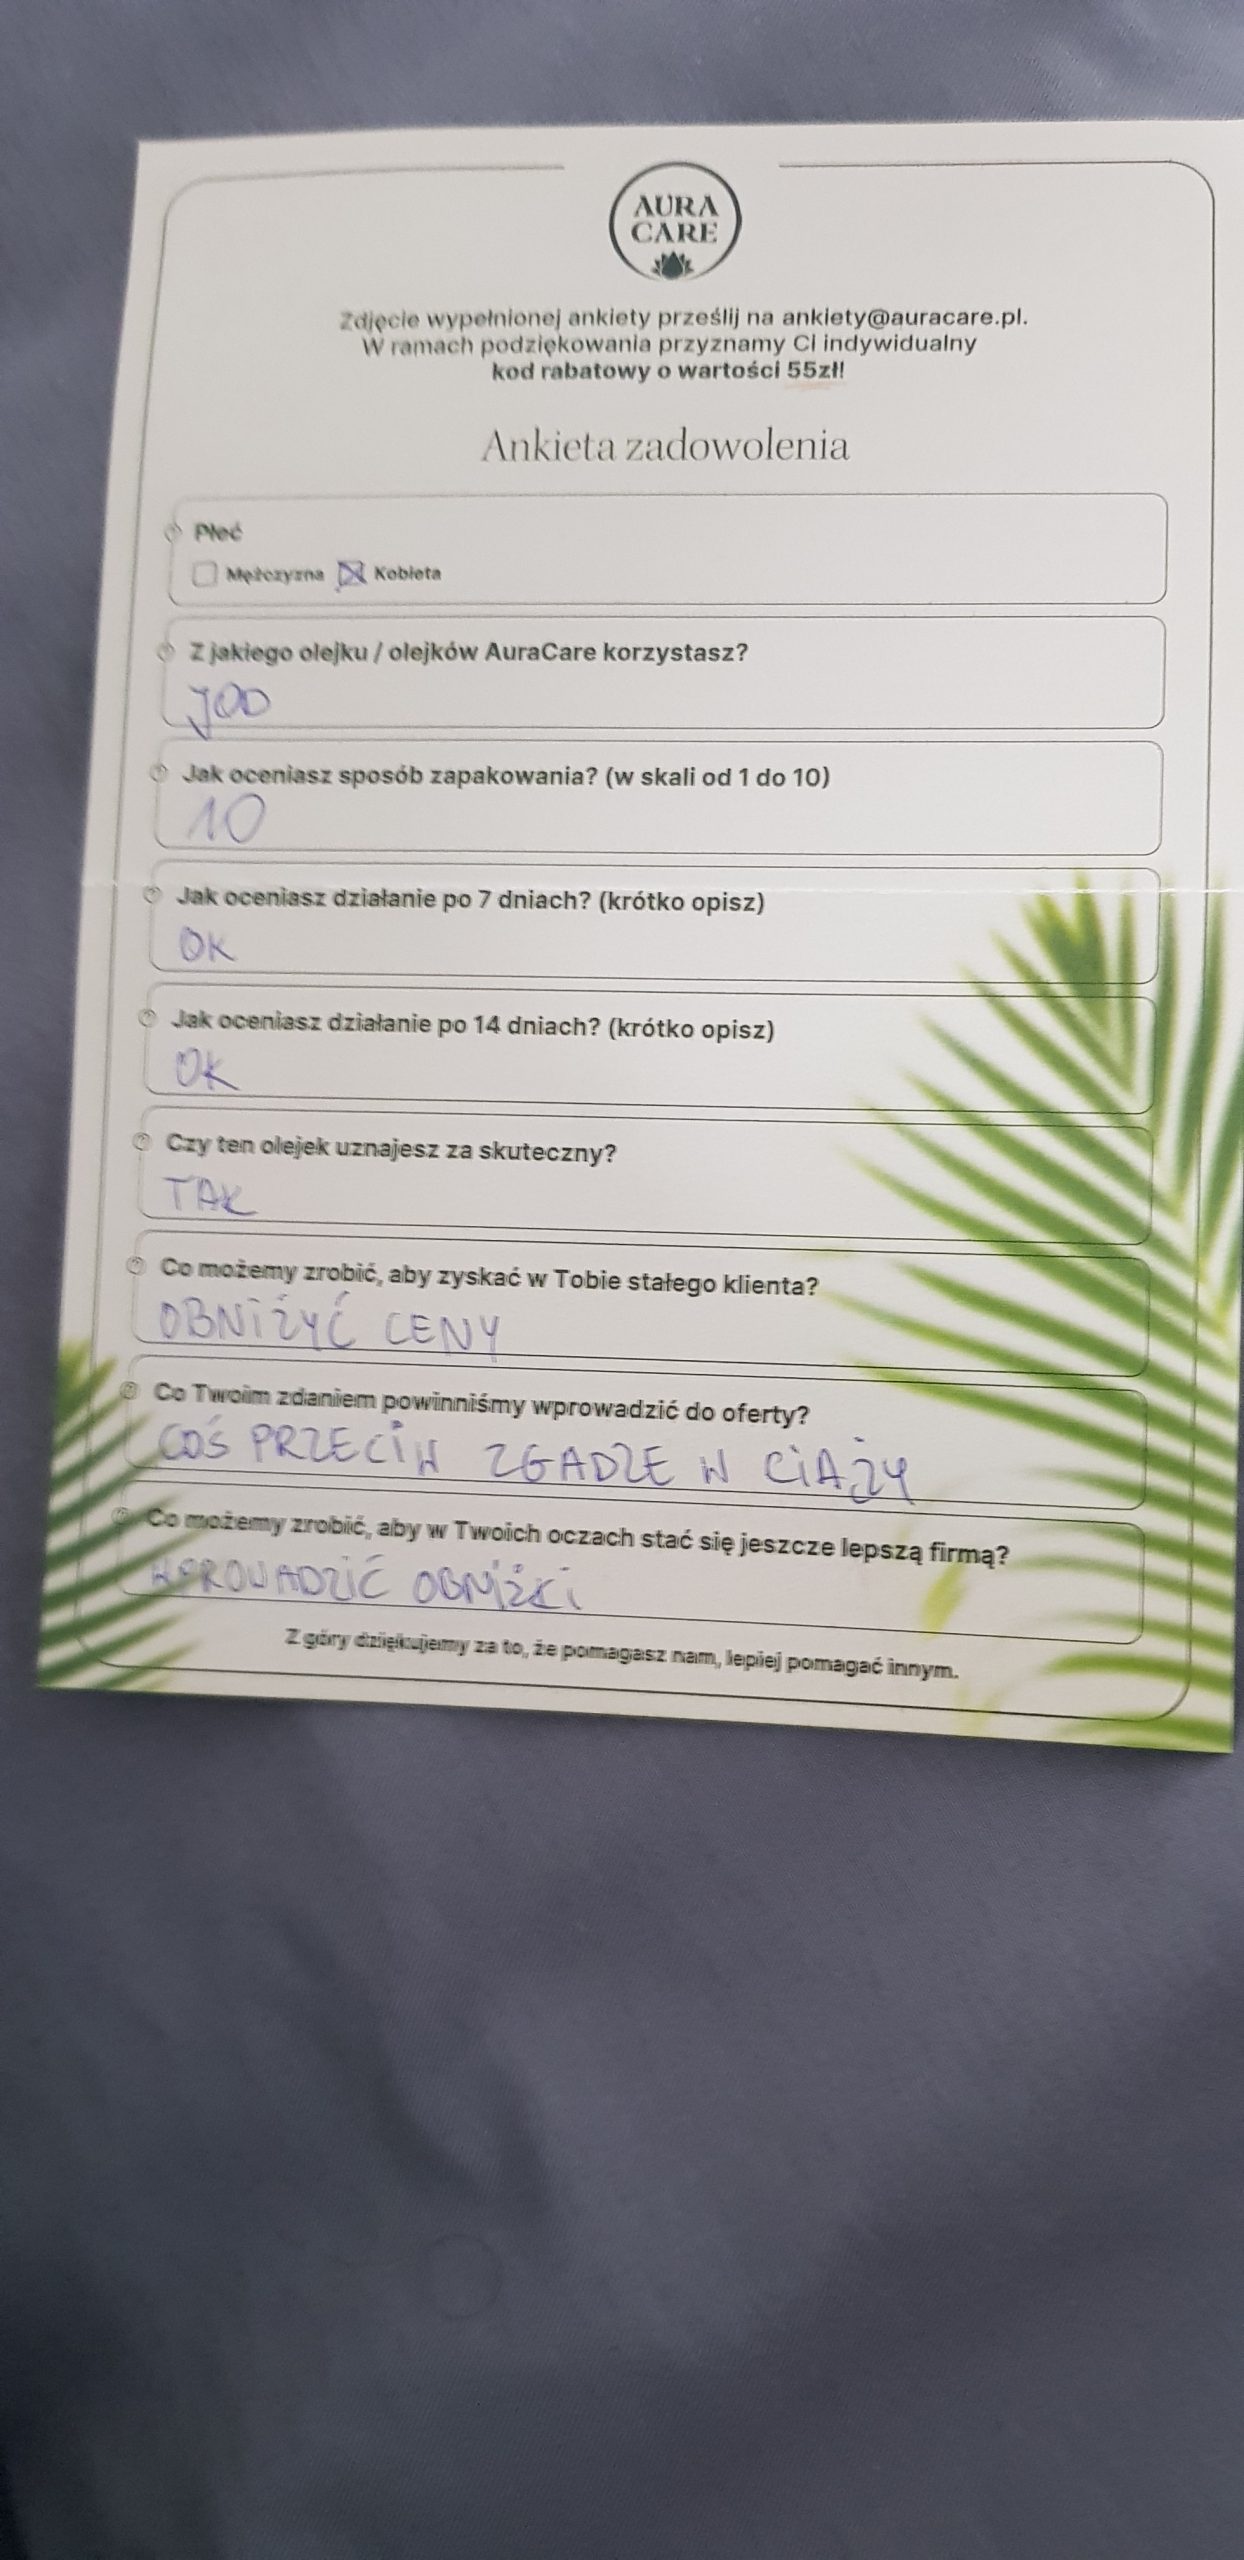 AURA
CARE
Zdjęcie wypełnionej ankiety prześlij na ankiety@auracare.pl.
W ramach podziękowania przyznamy Ci indywidualny
kod rabatowy o wartości 55zł!
Ankieta zadowolenia
Płeć
Mężczyzna Kobieta
Z jakiego olejku / olejków AuraCare korzystasz?
JOD
Jak oceniasz sposób zapakowania? (w skali od 1 do 10)
10
Jak oceniasz działanie po 7 dniach? (krótko opisz)
OK
Jak oceniasz działanie po 14 dniach? (krótko opisz)
OK
Czy ten olejek uznajesz za skuteczny?
TAK
Co możemy zrobić, aby zyskać w Tobie stałego klienta?
OBNIŻYĆ CENY
Co Twoim zdaniem powinniśmy wprowadzić do oferty?
COŚ PRZECIW ZGADZE W CIĄŻY
Co możemy zrobić, aby w Twoich oczach stać się jeszcze lepszą firmą?
WPROWADZIĆ OBNIŻKI
Z góry dziękujemy za to, że pomagasz nam, lepiej pomagać innym.